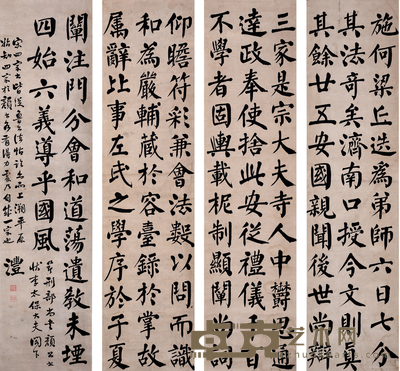 施何梁丘迭為弟師六日七分
其法奇矣濟南口授今文則真
其餘廿五安國親聞後世尚辯
三家是宗大夫寺人中欝思通
達政奉使捨此安從禮儀三
不學者固輿載柅制顯闡尚
仰瞻符彩兼會法數以問而識
和為嚴輔藏於容臺錄於掌故
属辭比事左氏之學序於子夏
闡注門分會和道蕩遺教未堙
四始六義導乎國風
刑部尚書顏公
太保大夫閣下
宋四家書皆從魯公
澧